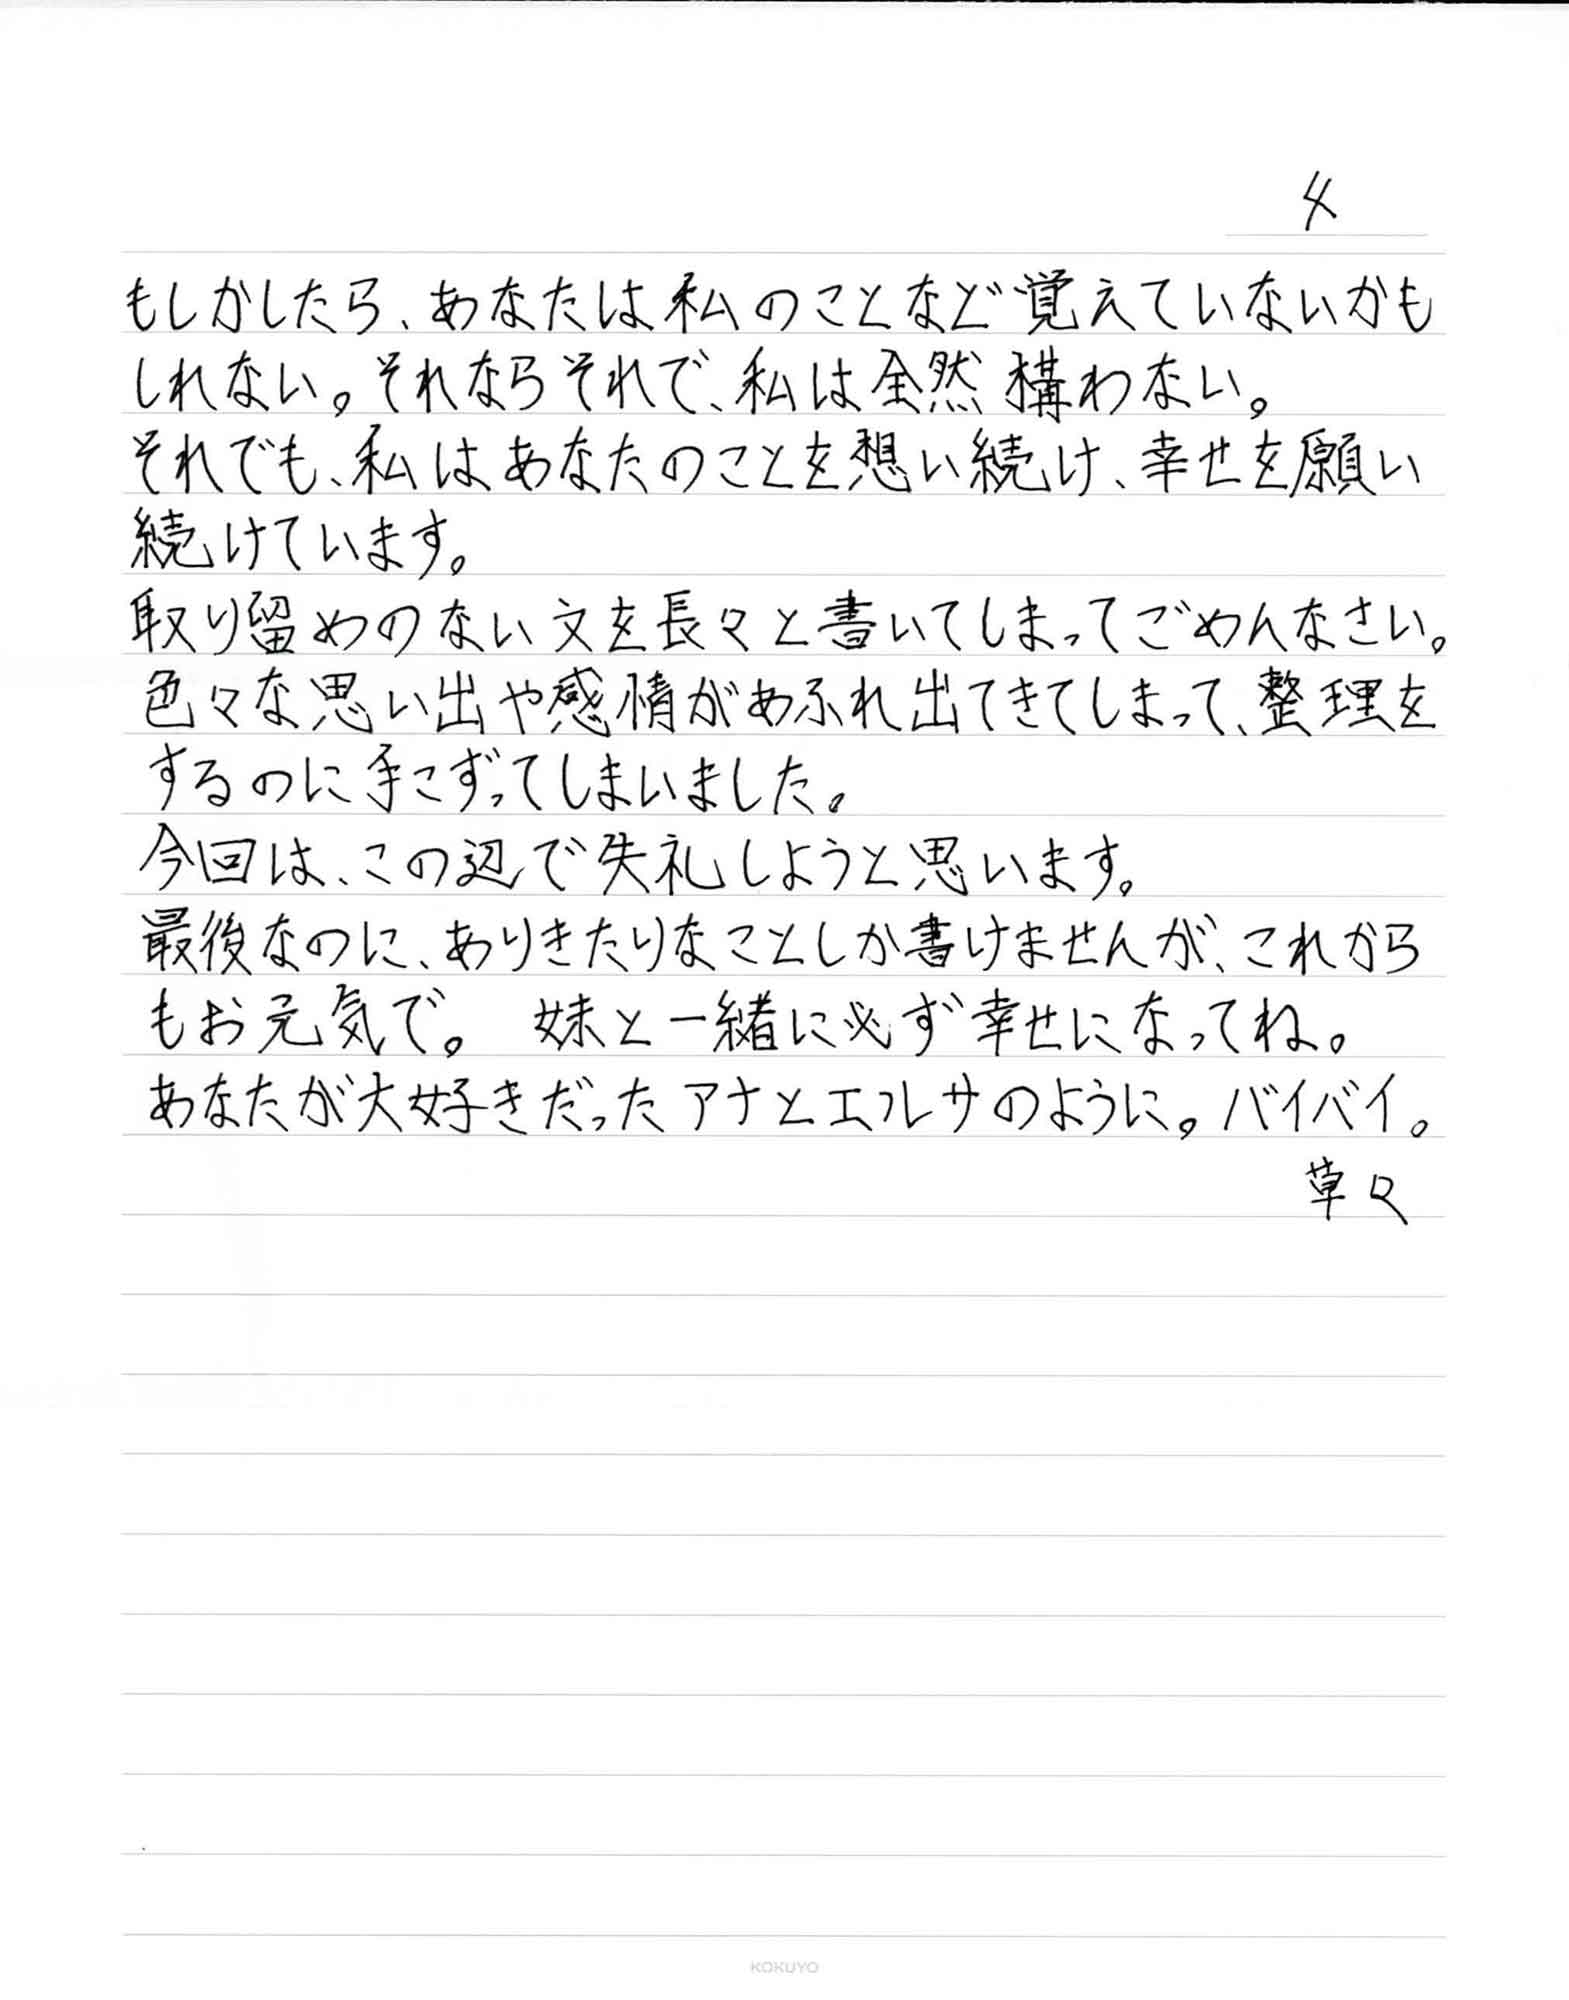 4
もしかしたら、あなたは私のことなど覚えていないかも
しれない。それならそれで、私は全然構わない。
それでも、私はあなたのことを想い続け、幸せを願い
続けています。
取り留めのない文を長々と書いてしまってごめんなさい。
色々な思い出や感情があふれ出てきてしまって、整理を
するのに手こずってしまいました。
今回は、この辺で失礼しようと思います。
最後なのに、ありきたりなことしか書けませんが、これから
もお元気で。 妹と一緒に必ず幸せになってね。
あなたが大好きだったアナとエルサのように。バイバイ。
草々
KOKUYO